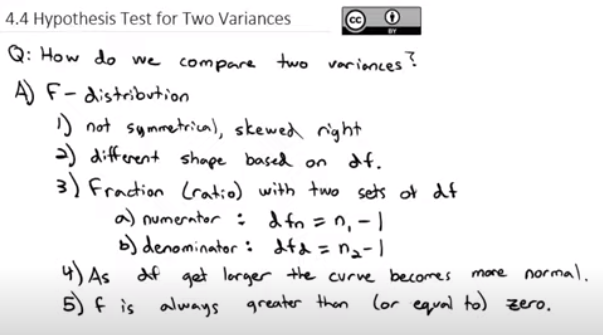 4.4 Hypothesis Test for Two Variances
cc BY
Q: How do we compare two variances?
A) F-distribution
1) not symmetrical, skewed right
2) different shape based on df.
3) Fraction (ratio) with two sets of df
a) numerator : dfn = n₁ - 1
b) denominator : dfd = n₂ - 1
4) As df get larger the curve becomes more normal.
5) f is always greater than (or equal to) zero.